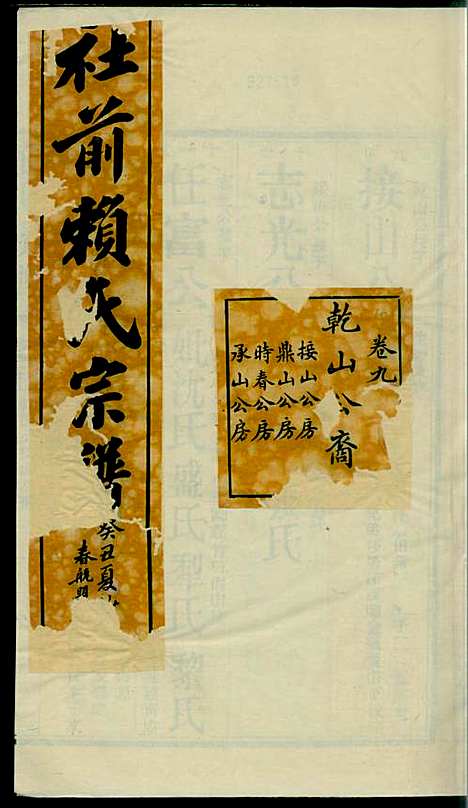 社前賴氏宗譜
癸丑夏
春航
卷九
乾山公裔
接山公房
鼎山公房
時春公房
承山公房